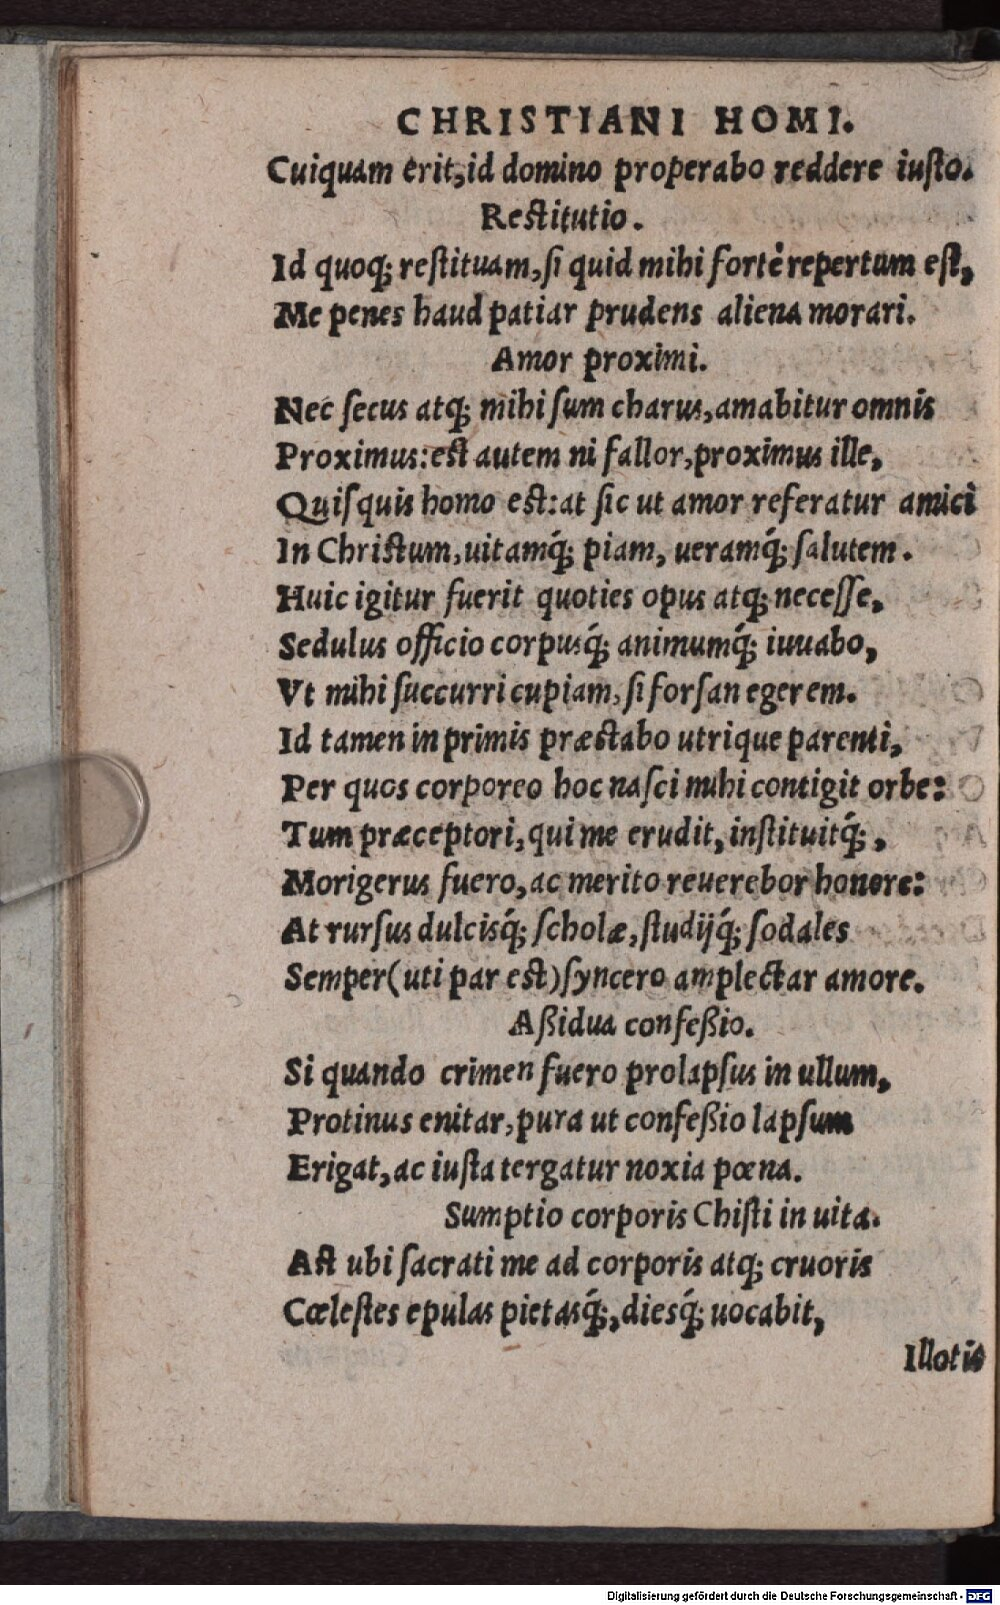 CHRISTIANI HOMI.
Cuiquam erit, id domino properabo reddere iusto.
Restitutio.
Id quoq; restituam, si quid mihi fortè repertum est,
Me penes haud patiar prudens aliena morari.
Amor proximi.
Nec secus atq; mihi sum charus, amabitur omnis
Proximus: est autem ni fallor, proximus ille,
Quisquis homo est: at sic ut amor referatur amici
In Christum, uitamq́; piam, ueramq́; salutem.
Huic igitur fuerit quoties opus atq; necesse,
Sedulus officio corpusq́; animumq́; iuuabo,
Vt mihi succurri cupiam, si forsan egerem.
Id tamen in primis præstabo utrique parenti,
Per quos corporeo hoc nasci mihi contigit orbe:
Tum præceptori, qui me erudit, instituitq́;,
Morigerus fuero, ac merito reuerebor honore:
At rursus dulcisq́; scholæ, studijq́; sodales
Semper (uti par est) syncero amplectar amore.
Aßidua confeßio.
Si quando crimen fuero prolapsus in ullum,
Protinus enitar, pura ut confeßio lapsum
Erigat, ac iusta tergatur noxia pœna.
Sumptio corporis Chisti in uita.
Ast ubi sacrati me ad corporis atq; cruoris
Cœlestes epulas pietasq́;, diesq́; uocabit,
Illotis
Digitalisierung gefördert durch die Deutsche Forschungsgemeinschaft - DFG